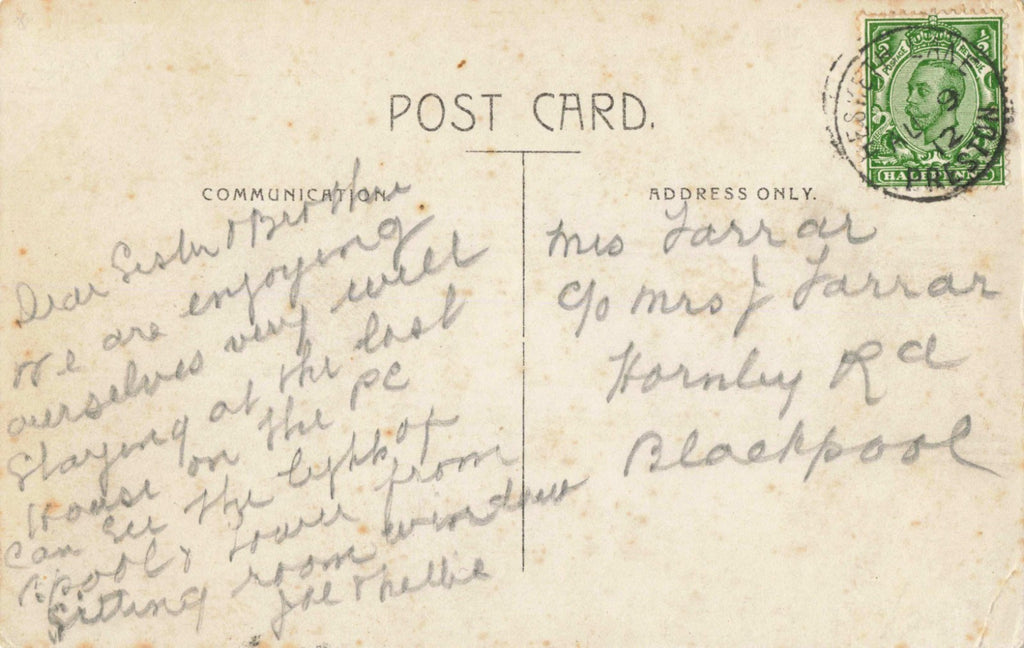 POST CARD.
COMMUNICATION.
ADDRESS ONLY.
POSTAGE REVENUE
HALFPENNY
HESKETH BANK
JL 9
12
PRESTON
Dear Sister & Brother
We are enjoying
ourselves very well
Staying at the last
House on the PC
Can see the lights of
B.pool & Tower from
Sitting room window
Joe & Nellie
Mrs Farrar
c/o Mrs J Farrar
Hornby Rd
Blackpool